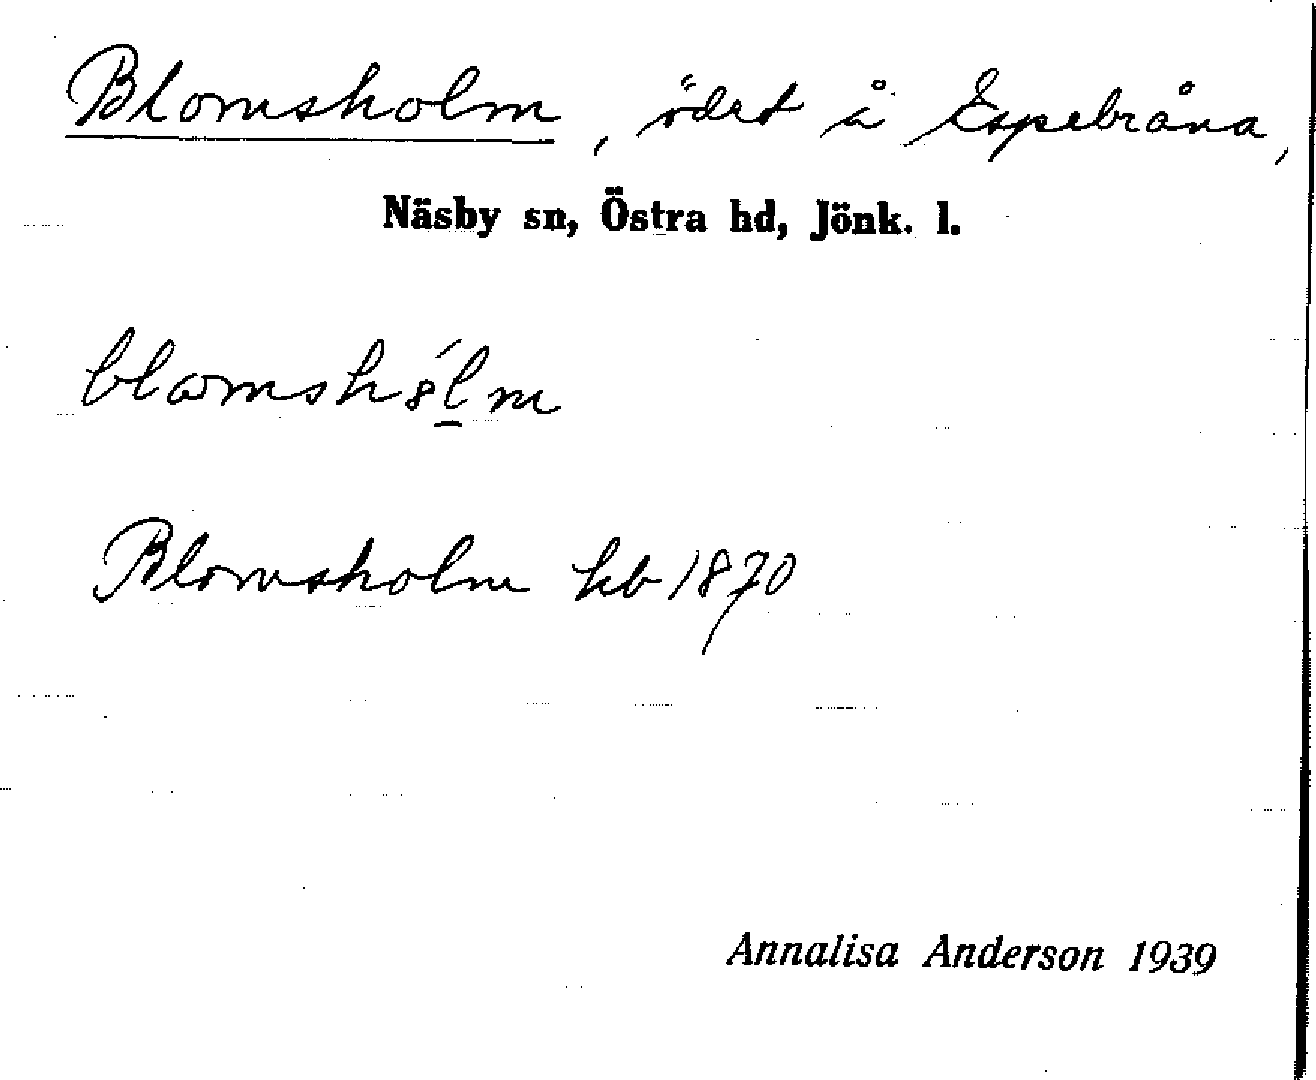 Blomsholm, ödet å Espebråna,
Näsby sn, Östra hd, Jönk. l.
blomshó̱lm
Blomsholm hb 1870
Annalisa Anderson 1939